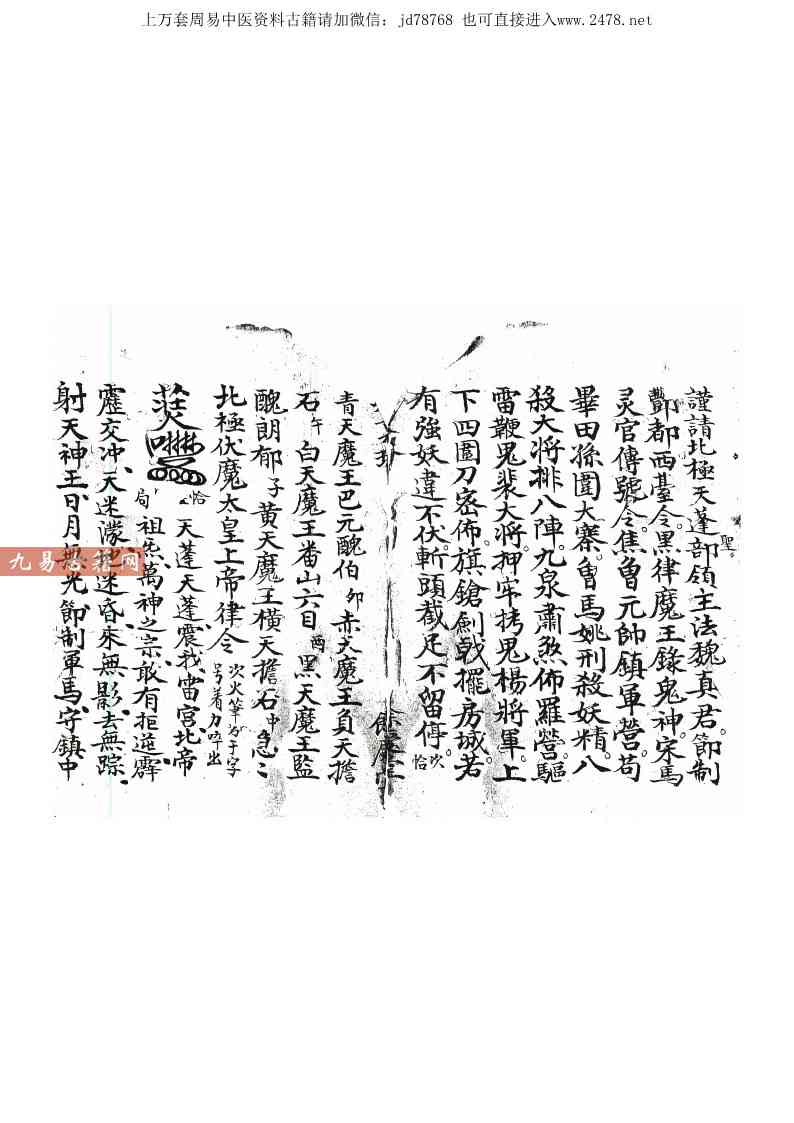 上万套周易中医资料古籍请加微信：jd78768 也可直接进入www.2478.net
聖。
謹請北極天蓬部領主法魏真君。節制
酆都西臺令。黑律魔王錄鬼神。宋馬
灵官傳號令。焦魯元帥鎮軍營。苟
畢田孫圍大寨。魯馬姚刑殺妖精。八
殺大將排八陣。九泉肅煞佈羅營。驅
雷鞭鬼裴大將。押牢拷鬼楊將軍。上
下四圍刀密佈。旗鎗劍戟擺房城。若
有強妖違不伏。斬頭截足不留停。吹恰
青天魔王巴元醜伯 卯 赤天魔王負天擔
石 午 白天魔王畨山六目 酉 黑天魔王監
醜朗郁 子 黄天魔王橫天擔石 中 急〻
北極伏魔太皇上帝律令 次火筆
号着力啐出
恰 天蓬天蓬震我雷宮北帝
局 祖炁萬神之宗敢有拒逆霹
靂交冲、天迷濛地迷昏來無影去無踪、
射天神王日月無光節制軍馬守鎮中
九易古籍网